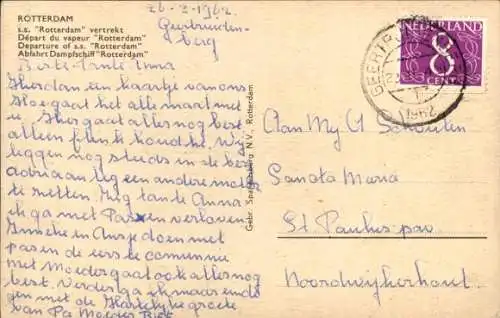 ROTTERDAM
s.s. "Rotterdam" vertrekt
Départ du vapeur "Rotterdam"
Departure of s.s. "Rotterdam"
Abfahrt Dampfschiff "Rotterdam"
26-2-1962.
Geertruiden-
berg
Beste tante Anna
Hierdan een kaartje van ons
Hoe gaat het alle maal met
u, Hier gaat alles nog best
alleen koude
leggen nog steeds in de
een andere
te zetten. Zeg tante Anna
ik ga met Pasen verloven
Anneke en doen met
pasen de eerste comunie
met Moeder gaat ook alles nog
best. Verder ga ik maar eindi
gen met de Hartelijke groete
van Pa Moeder
Gebr. Spanjersberg N.V., Rotterdam
NEDERLAND
8
CENT
1962
Aan Mej Schouten
Sancta Maria
St Paulus pav.
Noordwijkerhout